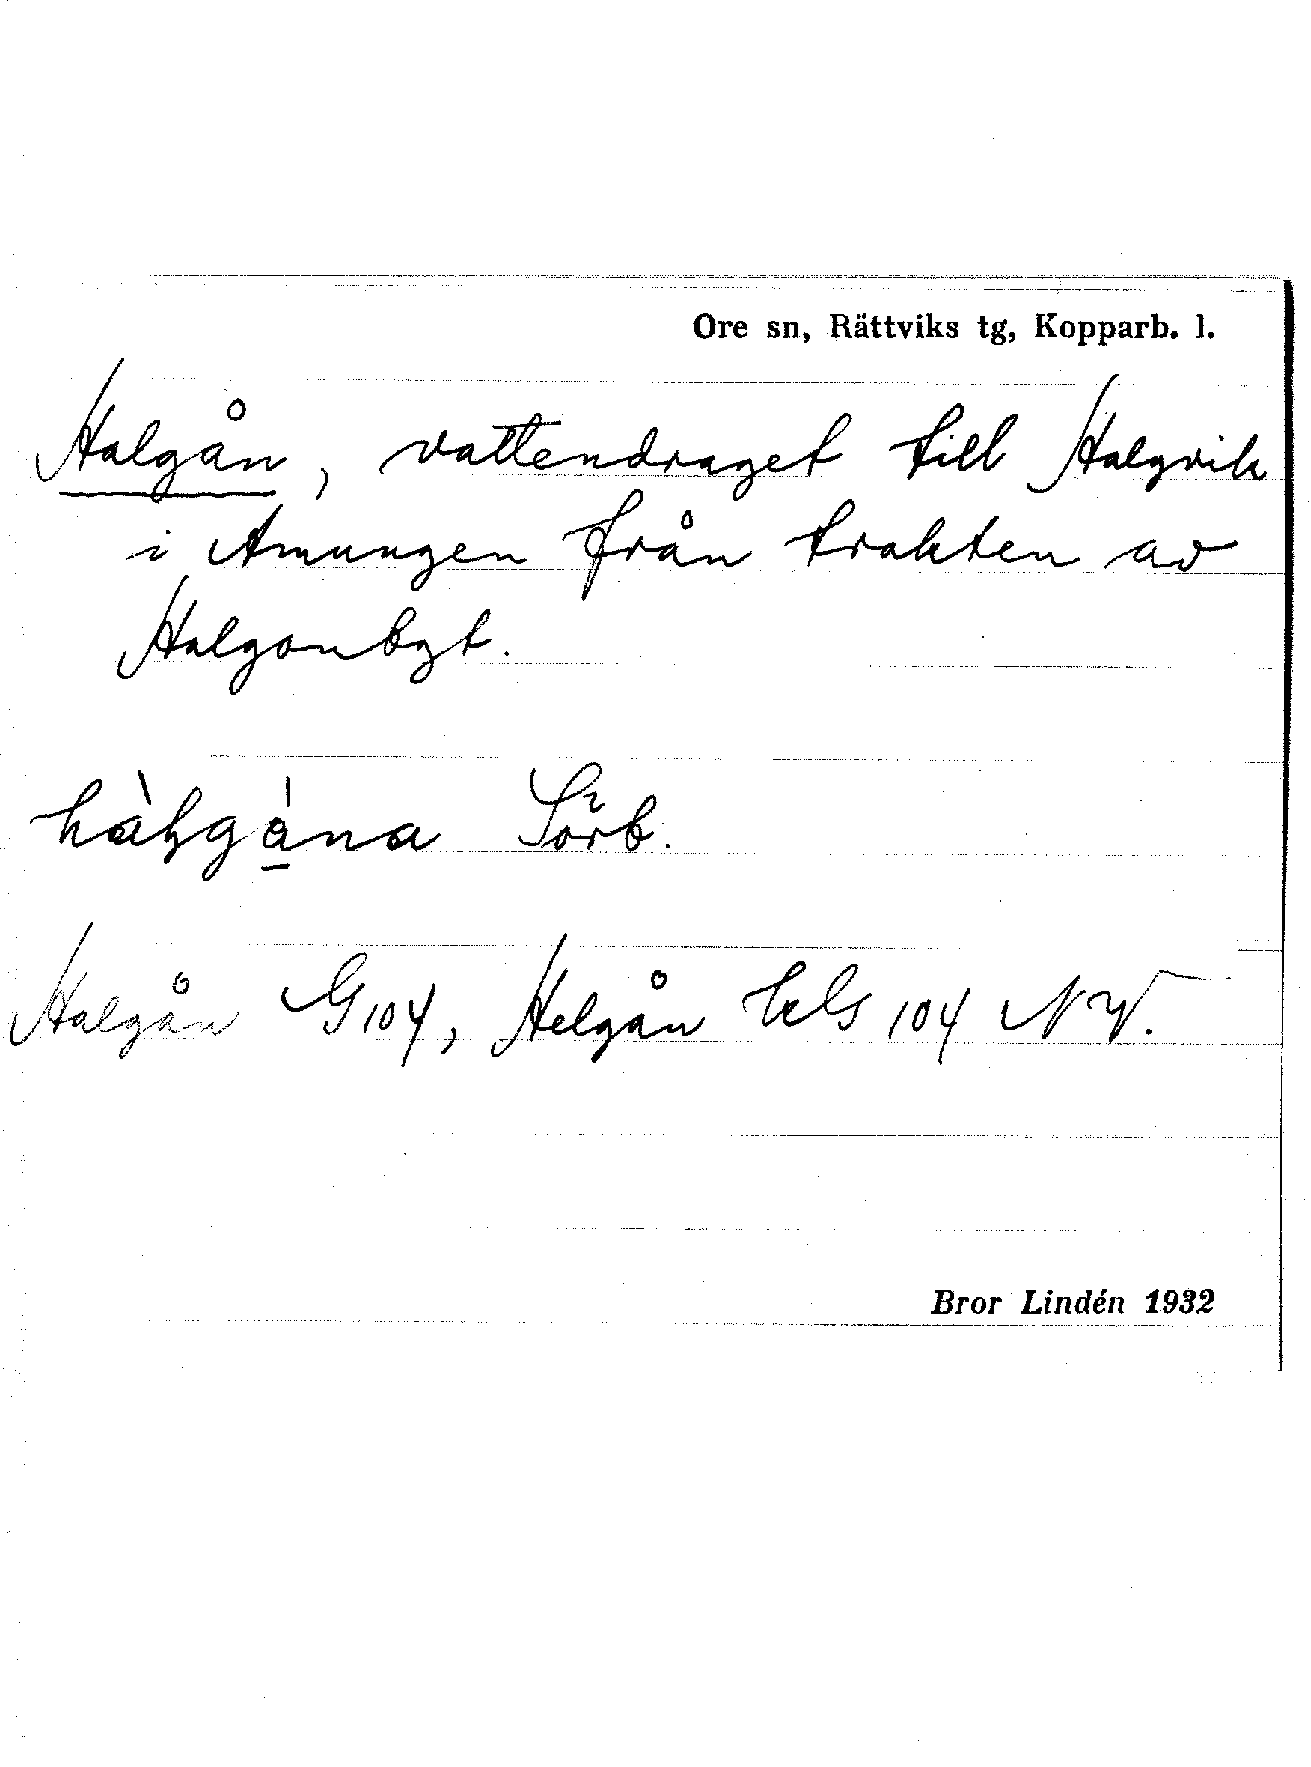 Ore sn, Rättviks tg, Kopparb. l.
Halgån, vattendraget till Halgvik
i Amungen från trakten av
Halgonbyt.
Sörb.
Halgån G 104, Helgån hls 104 NV.
Bror Lindén 1932